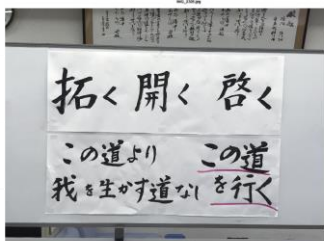 拓く 開く 啓く
この道より
我を生かす道なし
この道
を行く